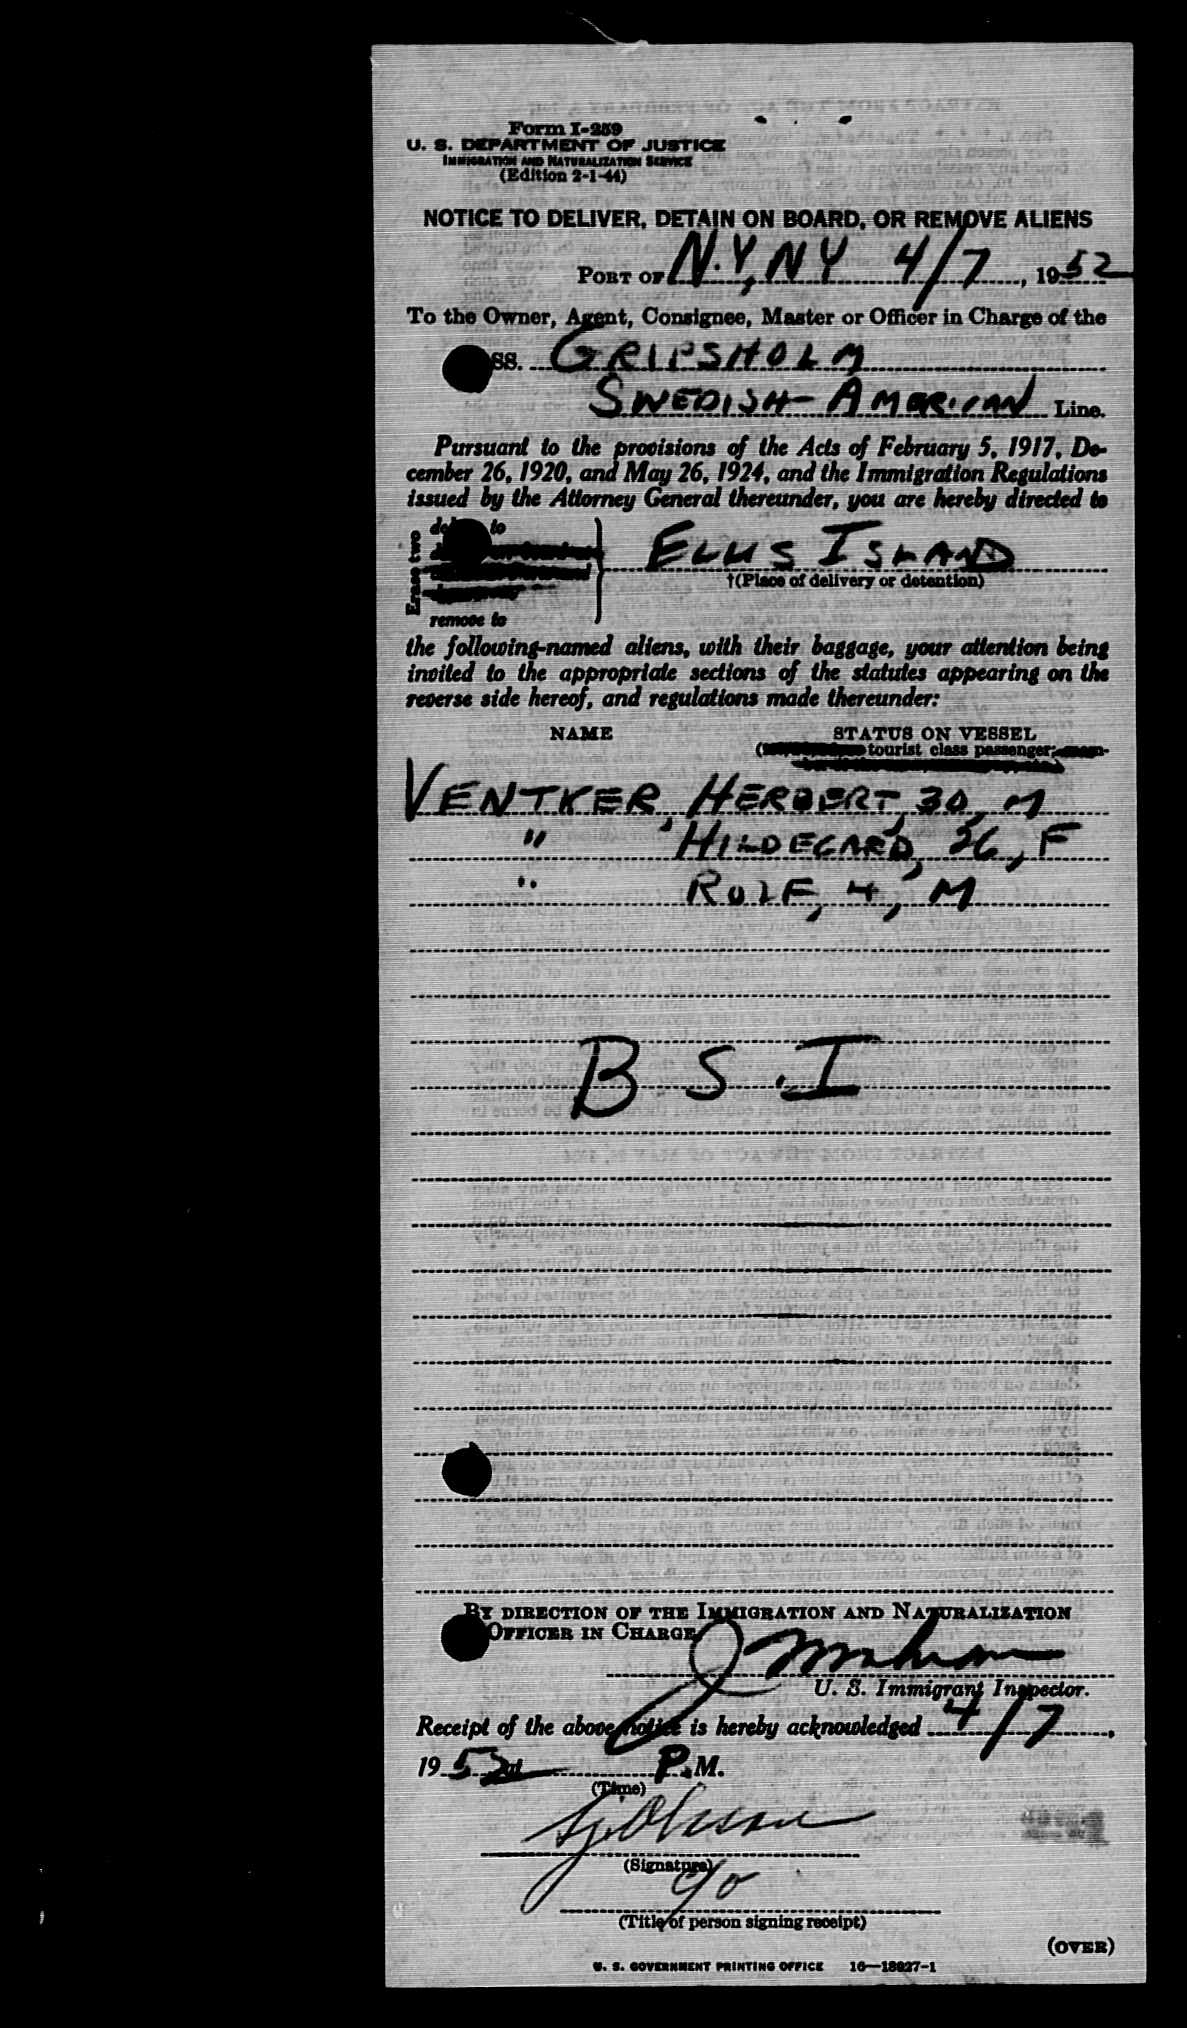 Form I-259
U. S. DEPARTMENT OF JUSTICE
IMMIGRATION AND NATURALIZATION SERVICE
(Edition 2-1-44)
NOTICE TO DELIVER, DETAIN ON BOARD, OR REMOVE ALIENS
PORT OF N.Y, NY 4/7, 1952
To the Owner, Agent, Consignee, Master or Officer in Charge of the
SS. GRIPSHOLM
SWEDISH-AMERICAN Line.
Pursuant to the provisions of the Acts of February 5, 1917, De-
cember 26, 1920, and May 26, 1924, and the Immigration Regulations
issued by the Attorney General thereunder, you are hereby directed to
Erase two
to
ELLIS ISLAND
†(Place of delivery or detention)
remove to
the following-named aliens, with their baggage, your attention being
invited to the appropriate sections of the statutes appearing on the
reverse side hereof, and regulations made thereunder:
NAME STATUS ON VESSEL
( tourist class passenger;
VENTKER, HERBERT, 30, M
" HILDEGARD, 26, F
" ROLF, 4, M
B S. I
BY DIRECTION OF THE IMMIGRATION AND NATURALIZATION
OFFICER IN CHARGE
U. S. Immigrant Inspector.
Receipt of the above notice is hereby acknowledged 4/7,
1952 at P.M.
(Time)
(Signature)
(Title of person signing receipt)
(OVER)
U. S. GOVERNMENT PRINTING OFFICE 16—18927-1